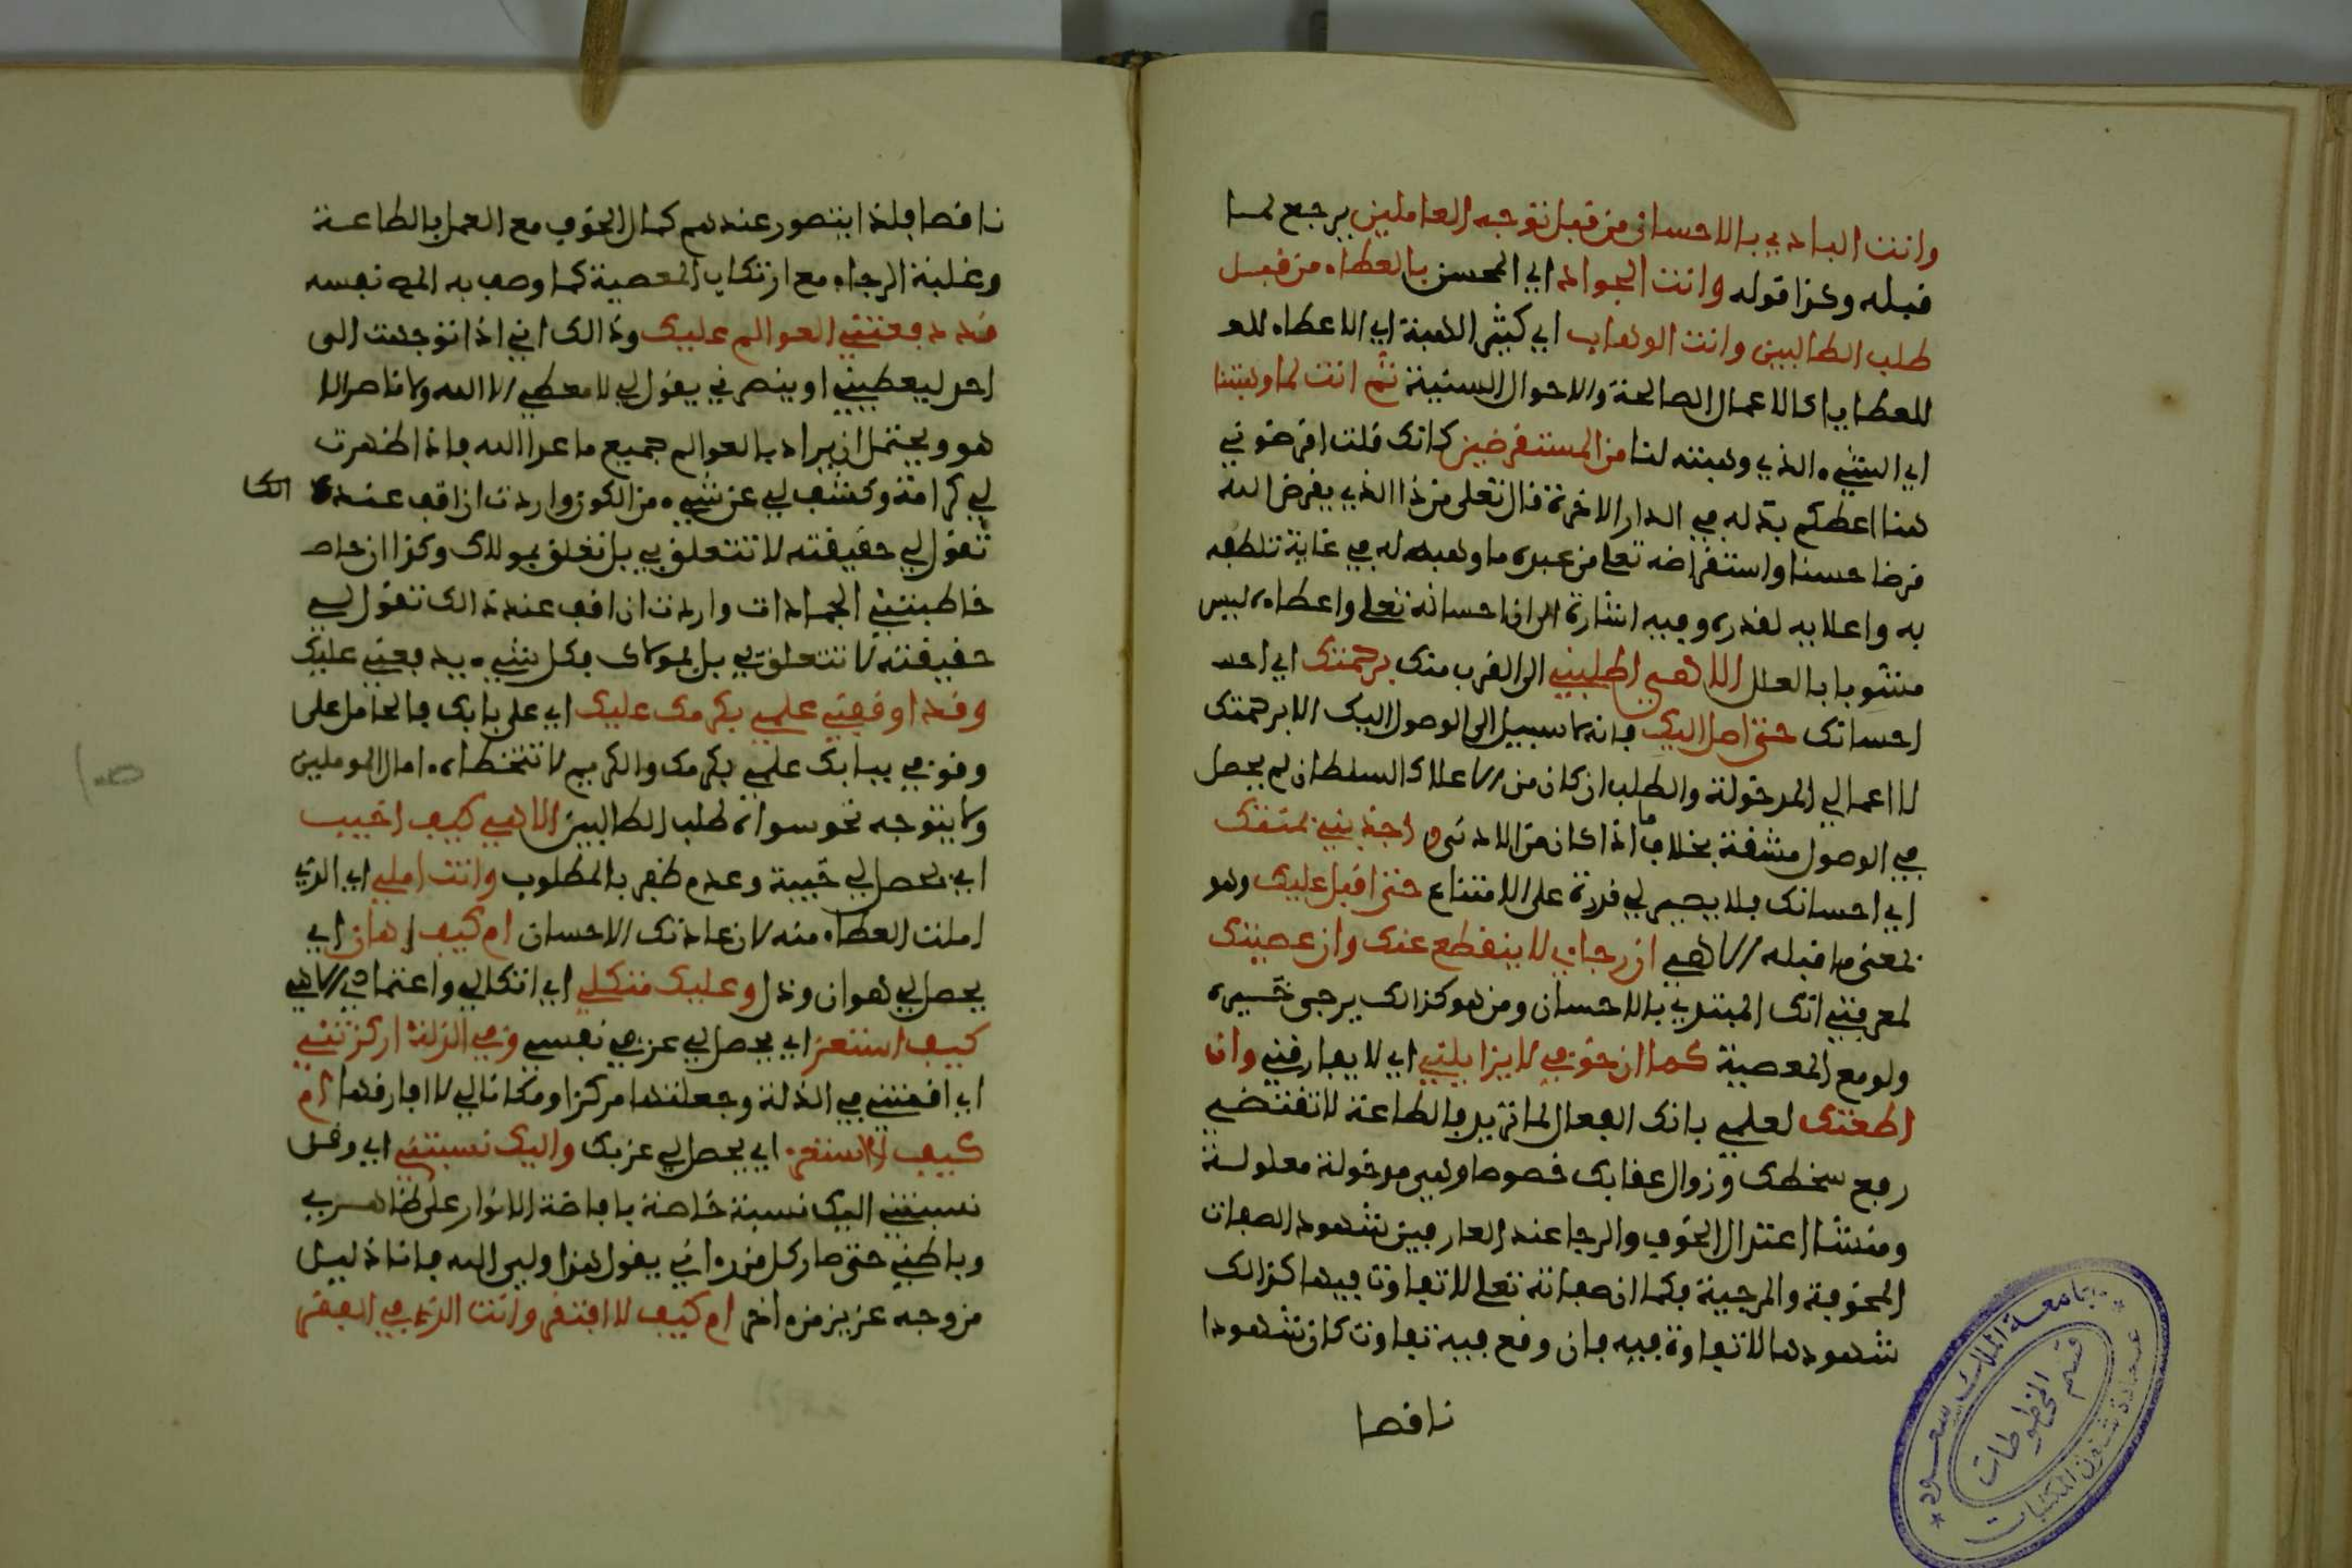 وانت البادي بالاحسان من قبل توجه العاملين يرجع لما
قبله وكذا قوله وانت الجواد اي المحسن بالعطاء من قبل
طلب الطالبين وانت الوهاب اي كثير الهبة اي الاعطاء للعـ
للعطايا كالاعمال الصالحة والاحوال السنية ثم انت لما وهبتنا
اي الشيء الذي وهبته لنا من المستقرضين كانك قلت اقرضوني
هنا اعطكم بدله في الدار الاخرة قال تعلى من ذا الذي يقرض الله
قرضا حسنا واستقراضه تعلى من عبده ما وهبه له في غاية تلطفه
به واعلا به لقدره وفيه اشارة الى ان احسانه تعلى واعطاءه ليس
مشوبا بالعلل الاهي اطلبني الى القرب منك برحمتك اي احد
احسانك حتى اصل اليك فانه لا سبيل الى الوصول اليك الا برحمتك
لا اعمالي المدخولة والطلب ان كان من الاعلا كالسلطان لم يحصل
في الوصول مشقة بخلاف ما اذا كان من الادنى و اجذبني بمنتك
اي احسانك فلا يصير لي قدرة على الامتناع حتى اقبل عليك وهو
بمعنى ما قبله الاهي ان رجاءي لا ينقطع عنك وان عصيتك
لمعرفتي انك المبتدي بالاحسان ومن هو كذالك يرجى خيره
ولو مع المعصية كما ان خوفي لا يزايلني اي لا يفارقني وان
اطعتك لعلمي بانك الفعال لما تريد فالطاعة لا تقتضي
رفع سخطك وزوال عقابك خصوصا وهي مدخولة معلولة
ومنشا اعتدال الخوف والرجا عند العارفين شهود الصفات
المخوفة والمرجية فكما ان صفاته تعلى لا تفاوت فيها كذالك
شهودها لا تفاوة فيه فان وقع فيه تفاوت كان شهودا
ناقصا
جامعة الملك سعود
قسم المخطوطات
عمادة شؤون المكتبات
ناقصا فلذا يتصور عندهم كمال الخوف مع العمل بالطاعة
وغلبة الرجاء مع ارتكاب المعصية كما وصف به المص نفسه
قد دفعتني العوالم عليك وذالك اني اذا توجهت الى
احد ليعطيني او ينصرني يقول لي لا معطي الا الله ولا ناصر الا
هو ويحتمل ان يراد بالعوالم جميع ما عدا الله فاذا ظهرت
لي كرامة وكشف لي عن شيء من الكون واردت ان اقف عند
تقول لي حقيقته لا تتعلق بي بل تعلق بمولاك وكذا ان
خاطبتني الجمادات واردت ان اقف عند ذالك تقول لي
حقيقته لا تتعلق بي بل بمولاك فكل شيء يدفعني عليك
وقد اوقفني علمي بكرمك عليك اي على بابك فالحامل على
وقوفي ببابك علمي بكرمك والكريم لا تتخطاه امال المؤملين
ولا يتوجه نحو سواه طلب الطالبين الاهي كيف اخيب
اي يحصل لي خيبة وعدم ظفر بالمطلوب وانت املي اي الذي
املت العطاء منه لان عادتك الاحسان ام كيف اهان اي
يحصل لي هوان وذل وعليك متكلي اي اتكالي واعتمادي الاهي
كيف استعز اي يحصل لي عز في نفسي وفي الذلة اركزتني
اي اقمتني في الذلة وجعلتها مركزا ومكانا لي لا افارقها ام
كيف لا استعز اي يحصل لي عز بك واليك نسبتني اي وقد
نسبتني اليك نسبة خاصة بافاضة الانوار على ظاهري
وباطني حتى صار كل من راني يقول هذا ولي الله فانا ذليل
من وجه عزيز من اخر ام كيف لا افتقر وانت الذي في الفقر